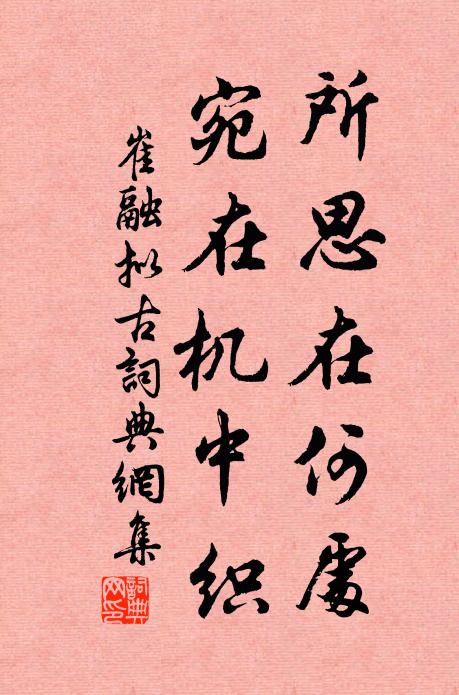 所思在何處
宛在机中织
崔融拟古詞典網集
詞典网印